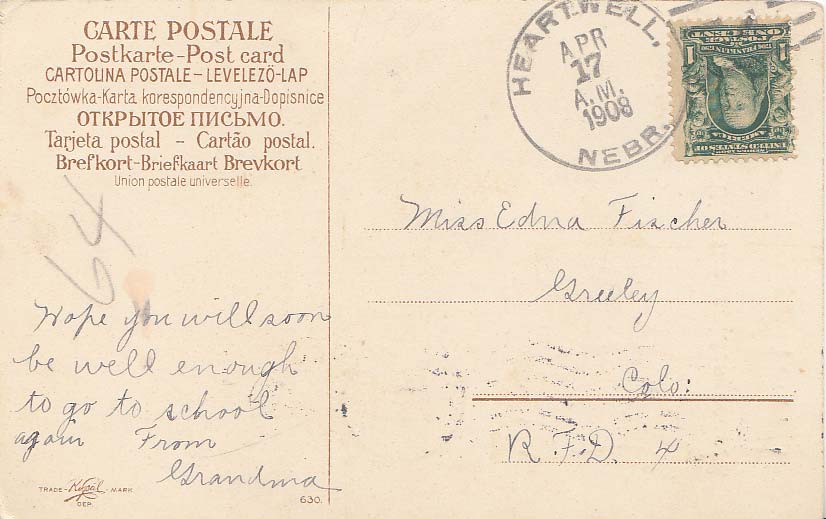 CARTE POSTALE
Postkarte-Post card
CARTOLINA POSTALE-LEVELEZŐ-LAP
Pocztówka-Karta korespondencyjna-Dopisnice
ОТКРЫТОЕ ПИСЬМО.
Tarjeta postal - Cartão postal.
Brefkort-Briefkaart Brevkort
Union postale universelle.
64
Hope you will soon
be well enough
to go to school
again From
Grandma
TRADE-MARK
DEP.
630.
HEARTWELL,
APR
17
A.M.
1908
NEBR.
1 POSTAGE 1
ONE CENT
AMERICA
UNITED STATES OF
Miss Edna Fischer
Greeley
Colo:
R.F.D. 4